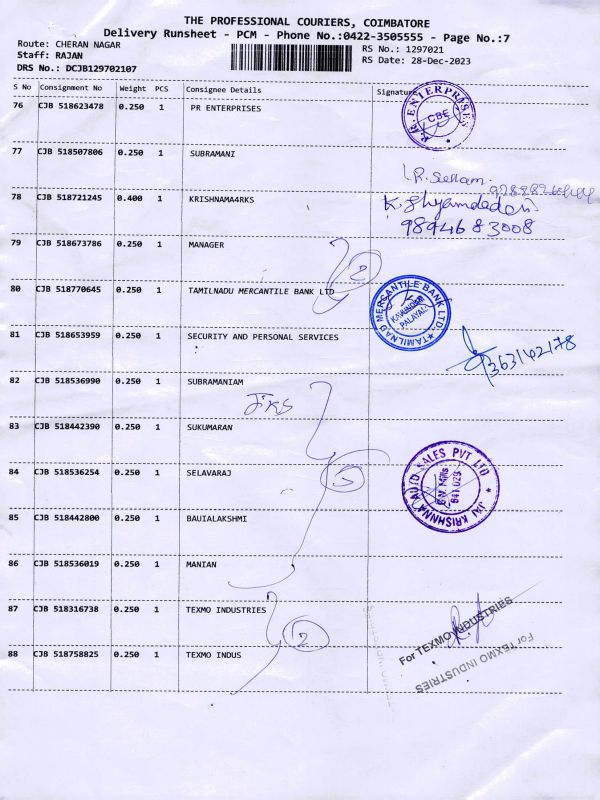 THE PROFESSIONAL COURIERS, COIMBATORE
Delivery Runsheet - PCM - Phone No.:0422-3505555 - Page No.:7
Route: CHERAN NAGAR
RS No.: 1297021
Staff: RAJAN
RS Date: 28-Dec-2023
DRS No.: DCJB129702107
S No Consignment No Weight PCS Consignee Details Signature
76 CJB 518623478 0.250 1 PR ENTERPRISES
P.R. ENTERPRISES
CBE
77 CJB 518507806 0.250 1 SUBRAMANI
78 CJB 518721245 0.400 1 KRISHNAMA4RKS
9894683008
79 CJB 518673786 0.250 1 MANAGER
2
80 CJB 518770645 0.250 1 TAMILNADU MERCANTILE BANK LTD
TAMILNAD MERCANTILE BANK LTD.
81 CJB 518653959 0.250 1 SECURITY AND PERSONAL SERVICES
82 CJB 518536990 0.250 1 SUBRAMANIAM
83 CJB 518442390 0.250 1 SUKUMARAN
84 CJB 518536254 0.250 1 SELAVARAJ
5
JAI KRISHNNA AUTO SALES PVT LTD
G.N. Mills
641 029
85 CJB 518442800 0.250 1 BAUIALAKSHMI
86 CJB 518536019 0.250 1 MANIAN
87 CJB 518316738 0.250 1 TEXMO INDUSTRIES
2
For TEXMO INDUSTRIES
For TEXMO INDUSTRIES
88 CJB 518758825 0.250 1 TEXMO INDUS